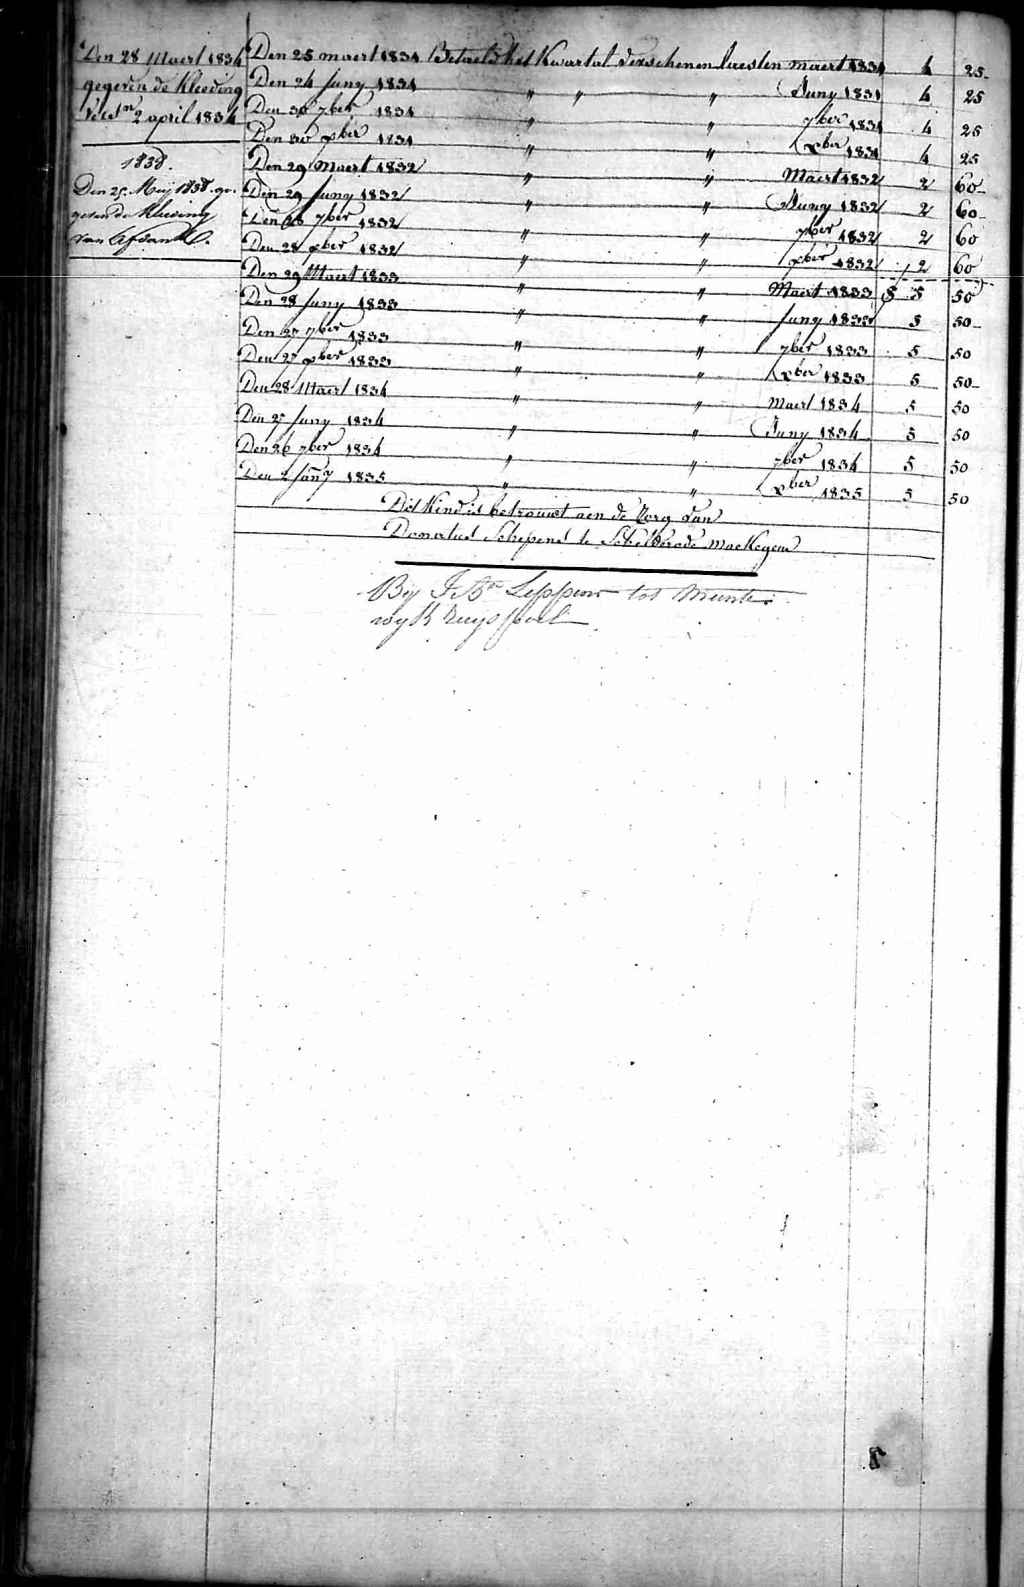 Den 28 Maert 1834
gegeven de Kleeding
2 april 1834
1838.
Den 25 Mey 1838 ge-
geven de Kleeding
van afdank
Den 25 maert 1831 Betaeld het Kwartal verschenen laesten maert 1831 4 25
Den 24 Juny 1831 " " " Juny 1831 4 25
Den 30 7ber 1831 " " 7ber 1831 4 25
Den 30 xber 1831 " " xber 1831 4 25
Den 29 Maert 1832 " " Maert 1832 2 60
Den 29 Juny 1832 " " Juny 1832 2 60
Den 28 7ber 1832 " " 7ber 1832 2 60
Den 28 xber 1832 " " xber 1832 2 60
Den 29 Maert 1833 " " Maert 1833 5 50
Den 28 Juny 1833 " " Juny 1833 5 50
Den 27 7ber 1833 " " 7ber 1833 5 50
Den 27 xber 1833 " " xber 1833 5 50
Den 28 Maert 1834 " " Maert 1834 5 50
Den 27 Juny 1834 " " Juny 1834 5 50
Den 26 7ber 1834 " " 7ber 1834 5 50
Den 2 Janry 1835 " " xber 1835 5 50
Dit Kind is betrouwt aen de Zorg van
Donatus Schepens te Scheldrode Mackegem
By Leppens tot Munte
wyk Ruyspoel